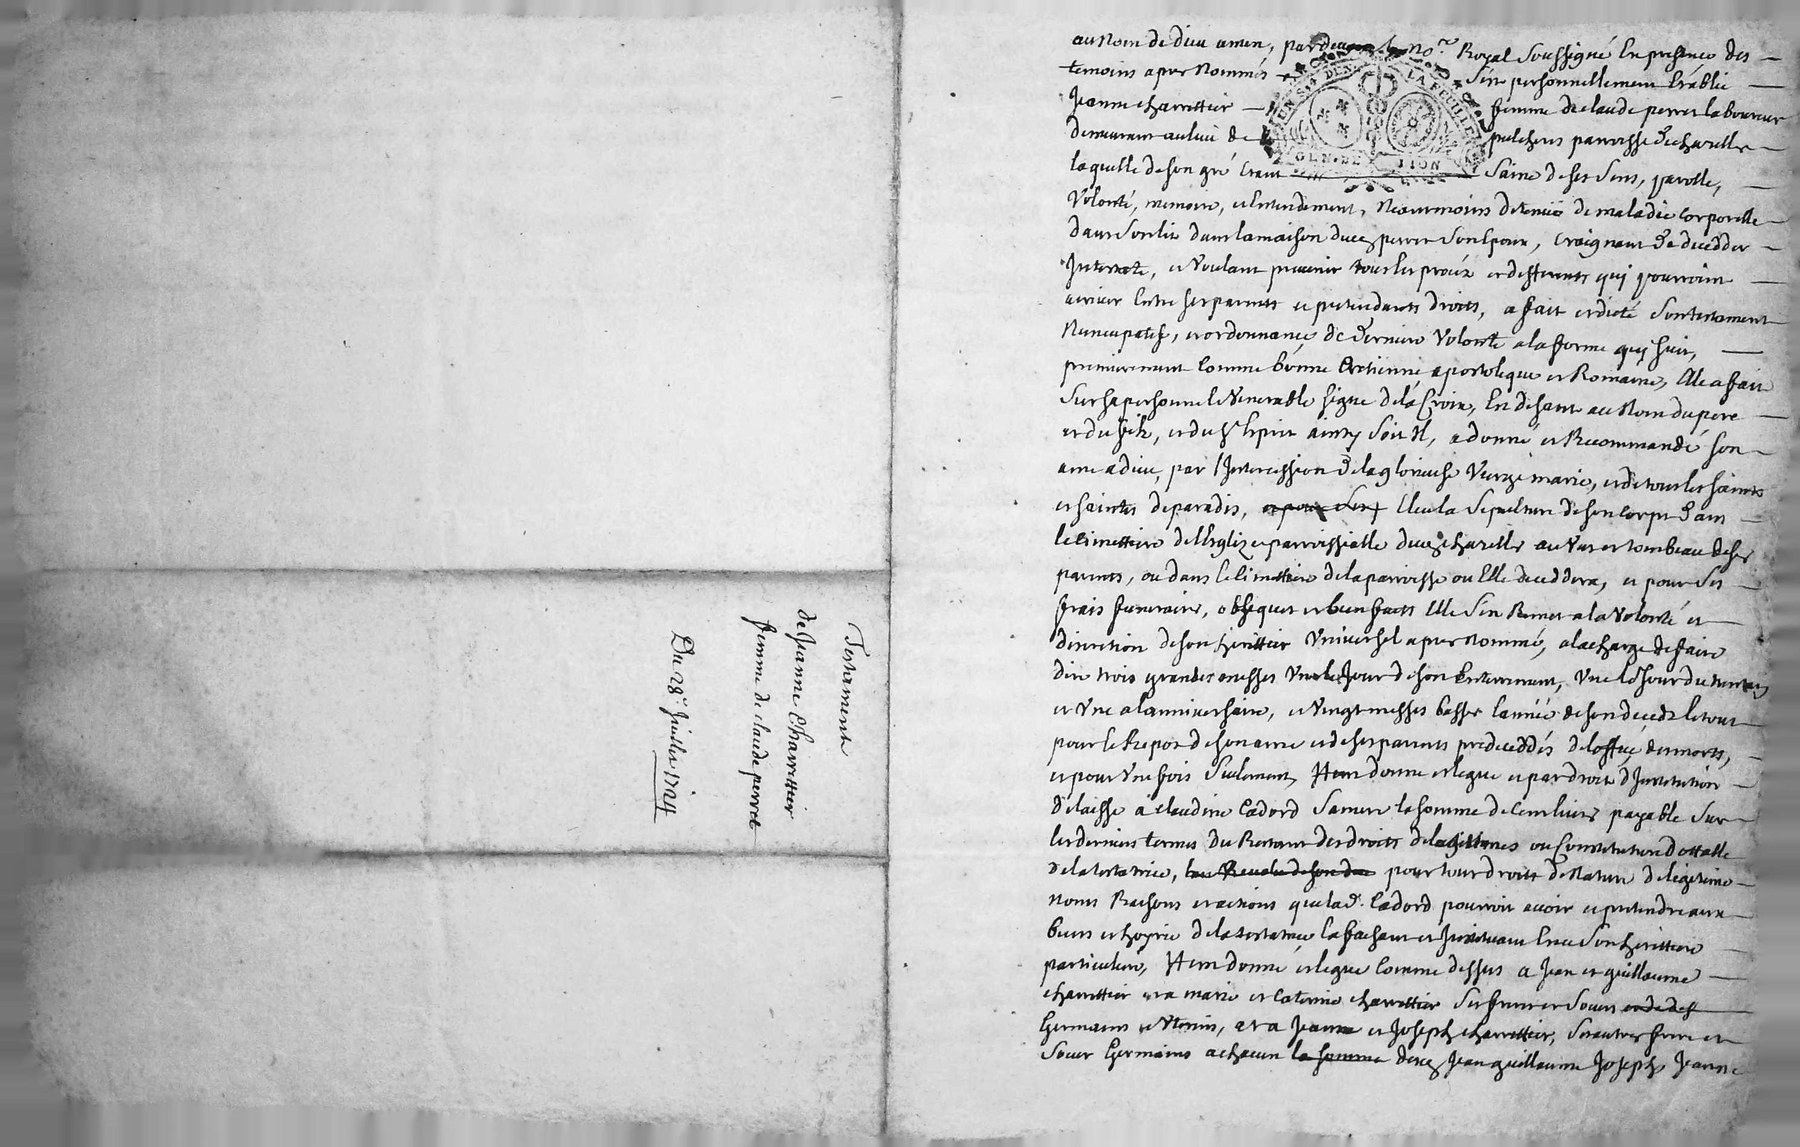 Testament
de Jeanne Charrettier
femme de claude perret
Du 28e Juillet 1724
au Nom de Dieu amen, pardevant le nore Royal soussigné En presence des
temoins apres Nommés s'est personnellement Establie
Jeanne charrettier femme de claude perret laboureur
demeurant au lieu de parroisse de charelle
laquelle de son gré Etant saine de ses sens, parolle,
Volonté, memoire, et Entendement, Neantmoins detenüe de maladie corporelle
dans son lit dans la maison dud. perret son Epoux, craignant de decedder
Intestate, et Voulant prevenir tous les procéz et differents qui pourroint
arriver Entre ses parents et pretendants droits, a fait et dicté son testament
Nuncupatif, et ordonnance de derniere Volonté a la forme qui suit,
premierement comme bonne Cretienne apostolique et Romaine, Elle a fait
sur sa personne le Venerable signe de la Croix, En disant au Nom du pere
et du fils, et du St Esprit ainsy soit Il, a donné et Recommandé son
ame a dieu, par l'Intercession de la glorieuse Vierge marie, et de tous les saints
et saintes de paradis, et pour ses Eleu la sepulture de son corps dans
le cimettiere de l'Eglize parroissialle dud. charelle au Vas et tombeau de ses
parents, ou dans le cimettiere de la parroisse ou Elle deceddera, et pour ses
frais funeraires, obseques et bienfaits Elle s'en Remet a la Volonté et
discretion de son herittier Universel apres Nommé, a la charge de faire
dire trois grandes messes Une le Jour de son Enterrement, Une le Jour du
et Une a l'anniversaire, et Vingt messes basses l'année de son decedz le tout
pour le Repos de son ame et de ses parents predeceddés de l'office des morts,
et pour Une fois seulement, Item donne et legue et par droit d'Institution
delaisse a claudine Cadord sa mere la somme de cent livres payable sur
les derniers termes du Restant des droits de legittimes ou Constitution dottalle
de la testatrice, pour tous droits de Nature de legitime
noms Raisons et actions que lad. Cadord pourroit avoir et pretendre aux
biens et hoyrie de la testatrice la faisant et Instituant En ce son herittiere
particuliere, Item donne et legue comme dessus a Jean et guillaume
charrettier et a marie et caterine charrettier ses freres et soeurs
Germains et Uterins, et a Jeanne et Joseph charrettier, ses autres frere et
soeur Germains a chacun la somme desd. Jean guillaume Joseph, Jeanne